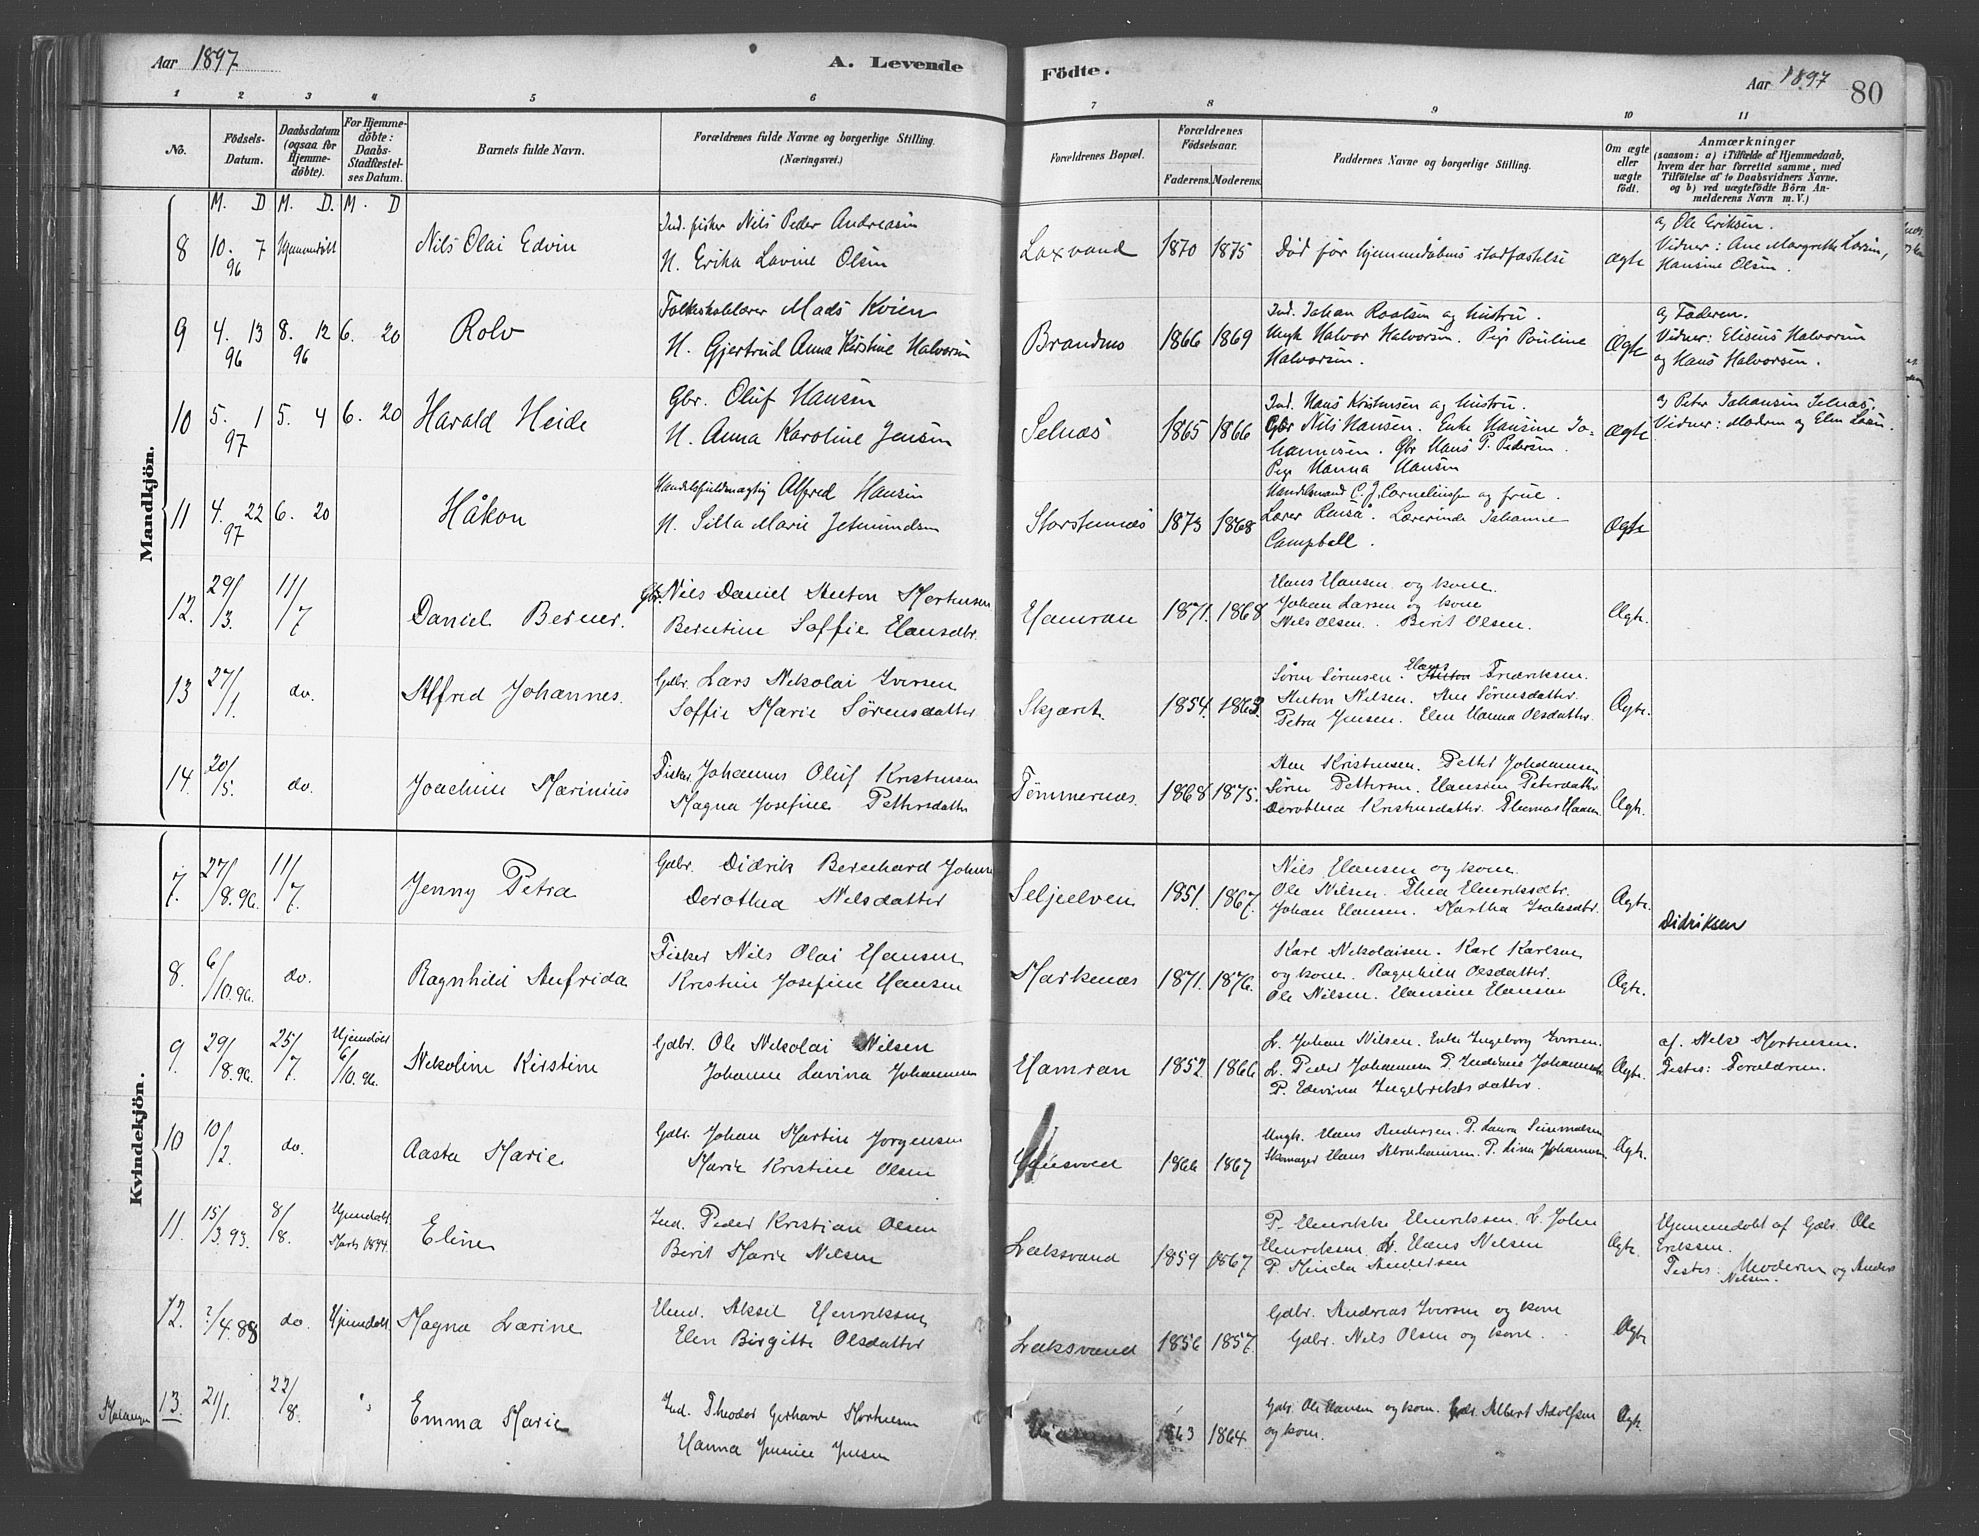 Aar 1897
A. Levende
Födte.
Aar 1897
80
1 2 3 4 5 6 7 8 9 10 11
No.
Födsels-Datum.
Daabsdatum (ogsaa for Hjemme-döbte).
For Hjemme-döbte: Daabs-Stadfæstelses Datum.
Barnets fulde Navn.
Forældrenes fulde Navne og borgerlige Stilling. (Næringsvei.)
Forældrenes Bopæl.
Forældrenes Födselsaar.
Faderens. Moderens.
Faddernes Navne og borgerlige Stilling.
Om ægte eller uægte födt.
Anmærkninger
(saasom: a) i Tilfælde af Hjemmedaab, hvem der har forrettet samme, med Tilföielse af to Daabsvidners Navne, og b) ved uægtefödte Börn Anmelderens Navn m. V.)
M. D M. D. M. D
Mandkjön.
8 10. 7 96 Hjemmedøbt Nils Olai Edvin
Ind. fisker Nils Peder Andreasen
H. Erika Lavine Olsen
Laxvand 1870 1875 Død før hjemmedåbens stadfæstelse Ægte
a) Ole Eriksen.
Vidner: Ane Margrethe Larsen,
Hansine Olsen.
9 4. 13 96 8. 12 96 6. 20 Rolv
Folkeskolelærer Mads Kvien
H. Gjertrud Anna Kirstine Halvorsen
Brandnes 1866 1869
Ind. Johan Roalsen og hustru.
Ungk Halvor Halvorsen. Pige Pauline
Halvorsen.
Ægte
a) Faderen.
Vidner: Elisius Halvorsen
og Hans Halvorsen.
10 5. 1 97 5. 4 6. 20 Harald Heide
Gbr. Oluf Hansen
H. Anna Karoline Jensen
Selnæs 1865 1866
Ind. Hans Kristensen og hustru.
Gbr Nils Hansen. Enke Hansine Jo-
hannesen. Gbr Hans P. Pedersen.
Pige Hanna Hansen
Ægte
a) Peter Johansen Selnæs.
Vidner: Modren og Elen
11 4. 22 97 6. 20 Håkon
Handelsfuldmægtig Alfred Hansen
H. Silla Marie Jetmundsen
Storstennæs 1873 1868
Handelsmand C. J. Corneliussen og frue.
Lærer Renså. Lærerinde Johanne
Campbell.
Ægte
12. 29/3. 11/7 Daniel Berner.
Gbr. Nils Daniel Anton Mortensen
Berntine Soffie Hansdtr.
Hamran 1871. 1868
Hans Hansen og kone.
Johan Larsen og kone
Nils Olsen. Berit Olsen.
Ægte.
13 27/1. do. Alfred Johannes.
Gdbr. Lars Nikolai Iversen
Soffie Marie Sørensdatter
Skjæret. 1854. 1863.
Søren Sørensen. Hans Fredriksen.
Anton Nilsen. Ane Sørensdatter.
Petra Jensen. Elen Hanna Olsdatter.
Ægte.
14. 20/5. do. Joachim Marinius
Fisker Johannes Oluf Kristensen
Magna Josefine Pettersdatter
Tømmernæs. 1868 1875.
Ane Kristensen. Petter Johannesen
Søren Pettersen. Hansine Petersdatter
Dorothea Kristensdatter. Thomas Hansen
Ægte.
Kvindekjön.
7. 27/8.96. 11/7. Jenny Petra
Gdbr. Didrik Bernhard Johns
Dorothea Nilsdatter
Seljeelven 1851. 1867.
Nils Hansen og kone.
Ole Nilsen. Thea Henriksdtr.
Johan Hansen. Martha Isaksdtr.
Ægte.
Didriksen
8. 6/10.96. do. Ragnhild Anfrida
Fisker Nils Olai Hansen
Kristine Josefine Hansen
Markenæs 1871. 1876.
Karl Nikolaisen. Karl Karlsen
og kone. Ragnhild Olsdatter.
Ole Nilsen. Hansine Hansen
Ægte.
9. 29/8.96. 25/7. Hjemdøbt 6/10.96. Nikoline Kirstine
Gdbr. Ole Nikolai Nilsen
Johanne Lavina Johannesen
Hamran 1852 1866
L. Johan Nilsen. Enke Ingeborg Iversen.
L. Peder Johannesen P. Johannesen
P. Edevina Ingebriktsdatter.
Ægte.
af. Nils Mortensen.
Testes: Forældrene.
10 10/2. do. Aasta Marie
Gdbr. Johan Martin Jørgensen
Marie Kristine Olsen
1866 1867
Ungk. Hans Andersen. P. Laura
Skomager Hans Abrahamsen. P. Lina Johannesen
Ægte.
11. 15/3.93. 8/8. Hjemdøbt Marts 1894. Eline
Ind. Peder Kristian Olsen
Berit Marie Nilsen
Laksvand 1859 1867
P. Henrikke Henrikssen. L. John
Henriksen. L. Hans Nilsen
P. Minda Andersen
Ægte.
Hjemmedøbt af Gdbr. Ole
Eriksen.
Testes: Moderen og Anders
Nilsen.
12. ?/4.88 do. Hjemdøbt Magna Larine
Aksel Henriksen
Elen Birgitte Olsdatter
Laksvand 1856 1857.
Gdbr. Andreas Iversen og kone
Gdbr. Nils Olsen og kone.
Ægte
Malangen 13. 21/1. 22/8. " Emma Marie
Ind. Theodor Gerhard Mortensen
Hanna Jensine Jensen
1863 1864.
Gdbr. Ole Hansen og kone. Gdbr. Albert Adolfsen
og kone.
Ægte